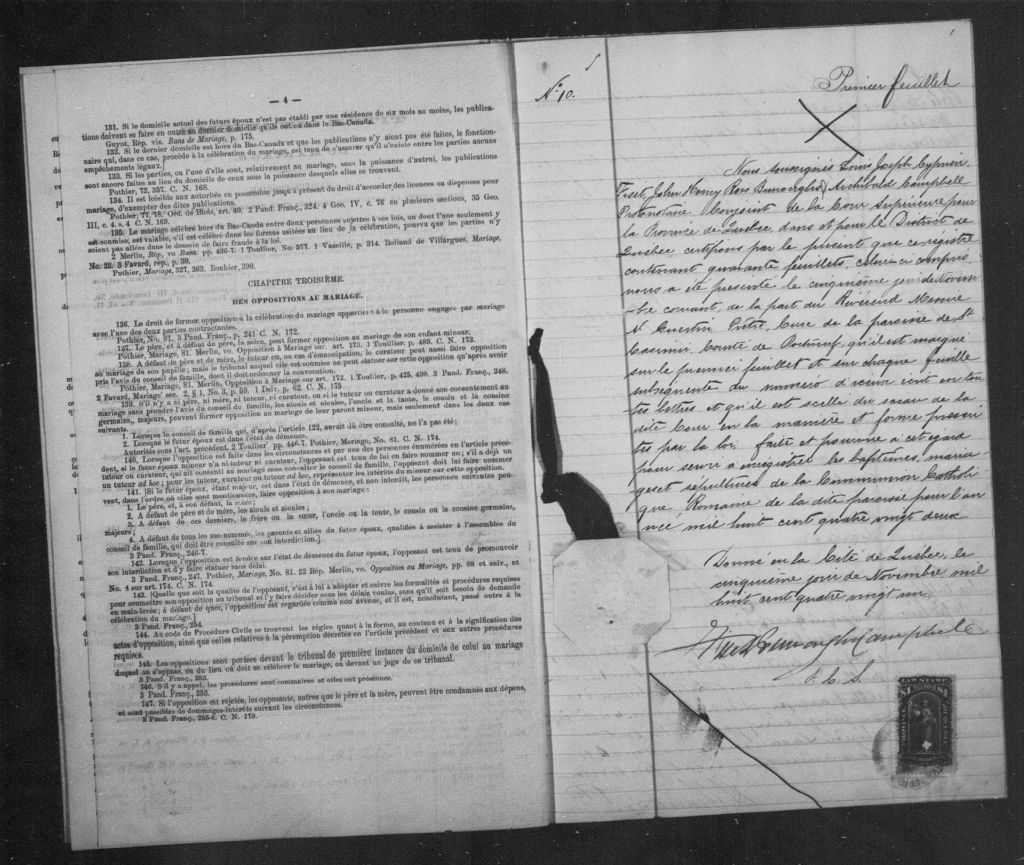 — 4 —
131. Si le domicile actuel des futurs époux n'est pas établi par une résidence de six mois au moins, les publica-
tions doivent se faire en outre au dernier domicile qu'ils ont eu dans le Bas-Canada.
Guyot, Rép. vis. Bans de Mariage, p. 175.
132. Si le dernier domicile est hors du Bas-Canada et que les publications n'y aient pas été faites, le fonction-
naire qui, dans ce cas, procède à la célébration du mariage, est tenu de s'assurer qu'il n'existe entre les parties aucuns
empêchements légaux.
133. Si les parties, ou l'une d'elles sont, relativement au mariage, sous la puissance d'autrui, les publications
sont encore faites au lieu du domicile de ceux sous la puissance desquels elles se trouvent.
Pothier, 72, 357. C. N. 168.
134. Il est loisible aux autorités en possession jusqu'à présent du droit d'accorder des licences ou dispenses pour
mariage, d'exempter des dites publications.
Pothier, 77, 78. Ord. de Blois, art. 40. 2 Pand. Franç., 324. 4 Geo. IV, c. 76 en plusieurs sections, 35 Geo.
III, c. 4, s. 4 C. N. 169.
135. Le mariage célébré hors du Bas-Canada entre deux personnes sujettes à ses lois, ou dont l'une seulement y
est soumise, est valable, s'il est célébré dans les formes usitées au lieu de la célébration, pourvu que les parties n'y
soient pas allées dans le dessein de faire fraude à la loi.
2 Merlin, Rép, vo Bans. pp. 436-7. 1 Toullier, No. 577. 1 Vazeille, p. 314. Rolland de Villargues, Mariage,
No. 22. 3 Favard, rép., p. 30.
Pothier, Mariage, 327, 363. Bouhier, 390.
CHAPITRE TROISIÈME.
DES OPPOSITIONS AU MARIAGE.
136. Le droit de former opposition à la célébration du mariage appartient à la personne engagée par mariage
avec l'une des deux parties contractantes.
Pothier, No. 81. 3 Pand. Franç., p. 241 C. N. 172.
137. Le père, et à défaut du père, la mère, peut former opposition au mariage de son enfant mineur.
Pothier, Mariage, 81. Merlin, vo. Opposition à Mariage sur art. 173. 1 Toullier. p. 489. C. N. 173.
138. A défaut de père et de mère, le tuteur, ou, au cas d'émancipation, le curateur peut aussi faire opposition
au mariage de son pupille; mais le tribunal auquel elle est soumise ne peut statuer sur cette opposition qu'après avoir
pris l'avis du conseil de famille, dont il doit ordonner la convocation.
Pothier, Mariage, 81. Merlin, Opposition à Mariage sur art. 172. 1 Toullier, p. 425, 490. 3 Pand. Franç., 248.
2 Favard, Mariage, sec. 2, § 1, No. 5, p. 59. 1 Delv. p. 62. C. N. 175
139. S'il n'y a ni père, ni mère, ni tuteur, ni curateur, ou si le tuteur ou curateur a donné son consentement au
mariage sans prendre l'avis du conseil de famille, les aïeuls et aïeules, l'oncle et la tante, le cousin et la cousine
germains, majeurs, peuvent former opposition au mariage de leur parent mineur, mais seulement dans les deux cas
suivants:
1. Lorsque le conseil de famille qui, d'après l'article 122, aurait dû être consulté, ne l'a pas été;
2. Lorsque le futur époux est dans l'état de démence.
Autorités sous l'art. précédent, 2 Toullier, pp. 446-7. Pothier, Mariage, No. 81. C. N. 174.
140. Lorsque l'opposition est faite dans les circonstances et par une des personnes énumérées en l'article précé-
dent, si le futur époux mineur n'a ni tuteur ni curateur, l'opposant est tenu de lui en faire nommer un; s'il a déjà un
tuteur ou curateur, qui ait consenti au mariage sans consulter le conseil de famille, l'opposant doit lui faire nommer
un tuteur ad hoc; pour les tuteur, curateur ou tuteur ad hoc, représenter les intérêts du mineur sur cette opposition.
141. [Si le futur époux, étant majeur, est dans l'état de démence, et non interdit, les personnes suivantes peu-
vent, dans l'ordre où elles sont mentionnées, faire opposition à son mariage:
1. Le père, et, à son défaut, la mère;
2. A défaut de père et de mère, les aïeuls et aïeules;
3. A défaut de ces derniers, le frère ou la sœur, l'oncle ou la tente, le cousin ou la cousine germains,
majeurs;
4. A défaut de tous les sus-nommés, les parents et alliés du futur époux, qualifiés à assister à l'assemblée du
conseil de famille, qui doit être consulté sur son interdiction.]
3 Pand. Franç., 246-7.
142. Lorsque l'opposition est fondée sur l'état de démence du futur époux, l'opposant est tenu de promouvoir
son interdiction et d'y faire statuer sans délai.
3 Pand. Franç., 247. Pothier, Mariage, No. 81. 22 Rép. Merlin, vo. Opposition au Mariage, pp. 88 et suiv., et
No. 4 sur art. 174. C. N. 174.
143. [Quelle que soit la qualité de l'opposant, c'est à lui à adopter et suivre les formalités et procédures requises
pour soumettre son opposition au tribunal et l'y faire décider sous les délais voulus, sans qu'il soit besoin de demande
en main-levée; à défaut de quoi, l'opposition est regardée comme non avenue, et il est, nonobstant, passé outre à la
célébration du mariage.]
3 Pand. Franç., 254.
144. Au code de Procédure Civile se trouvent les règles quant à la forme, au contenu et à la signification des
actes d'opposition, ainsi que celles relatives à la péremption décrétée en l'article précédent et aux autres procédures
requises.
145. Les oppositions sont portées devant le tribunal de première instance du domicile de celui au mariage
duquel on s'oppose, ou du lieu où doit se célébrer le mariage, ou devant un juge de ce tribunal.
3 Pand. Franç., 253.
146. S'il y a appel, les procédures sont sommaires et elles ont préséance.
3 Pand. Franç., 253.
147. Si l'opposition est rejetée, les opposants, autres que le père et la mère, peuvent être condamnés aux dépens,
et sont passibles de dommages-intérêts suivant les circonstances.
3 Pand. Franç., 255-6. C. N. 179.
No. 10.
Premier feuillet
Nous soussignés Louis Joseph Cyprien
Fiset, John Henry Ross Burroughs, Archibald Campbell
Protonotaire Conjoint de la Cour Supérieure pour
la Province de Québec dans et pour le District de
Québec certifions par le présent que ce régistre
contenant quarante feuillets, celui-ci compris
nous a été présenté le cinquième jour de Novem-
-bre courant, de la part du Révérend Messire
N Guertin, Prêtre, Curé de la paroisse de St
Casimir, Comté de Portneuf, qu'il est marqué
sur le premier feuillet et sur chaque feuille
subséquente du numéro d'icelui écrit en tou
tes lettres et qu'il est scellé du sceau de la
dite Cour en la manière et forme prescri
tes par la loi faite et pourvue à cet égard
pour servir à enregistrer les baptêmes, maria-
ges et sépultures de la Communion Catholi
que Romaine de la dite paroisse pour l'an
née mil huit cent quatre vingt deux
Donné en la Cité de Québec, le
cinquième jour de Novembre mil
huit cent quatre vingt un
Fiset Burroughs Campbell
P. C. S.
LAW STAMP